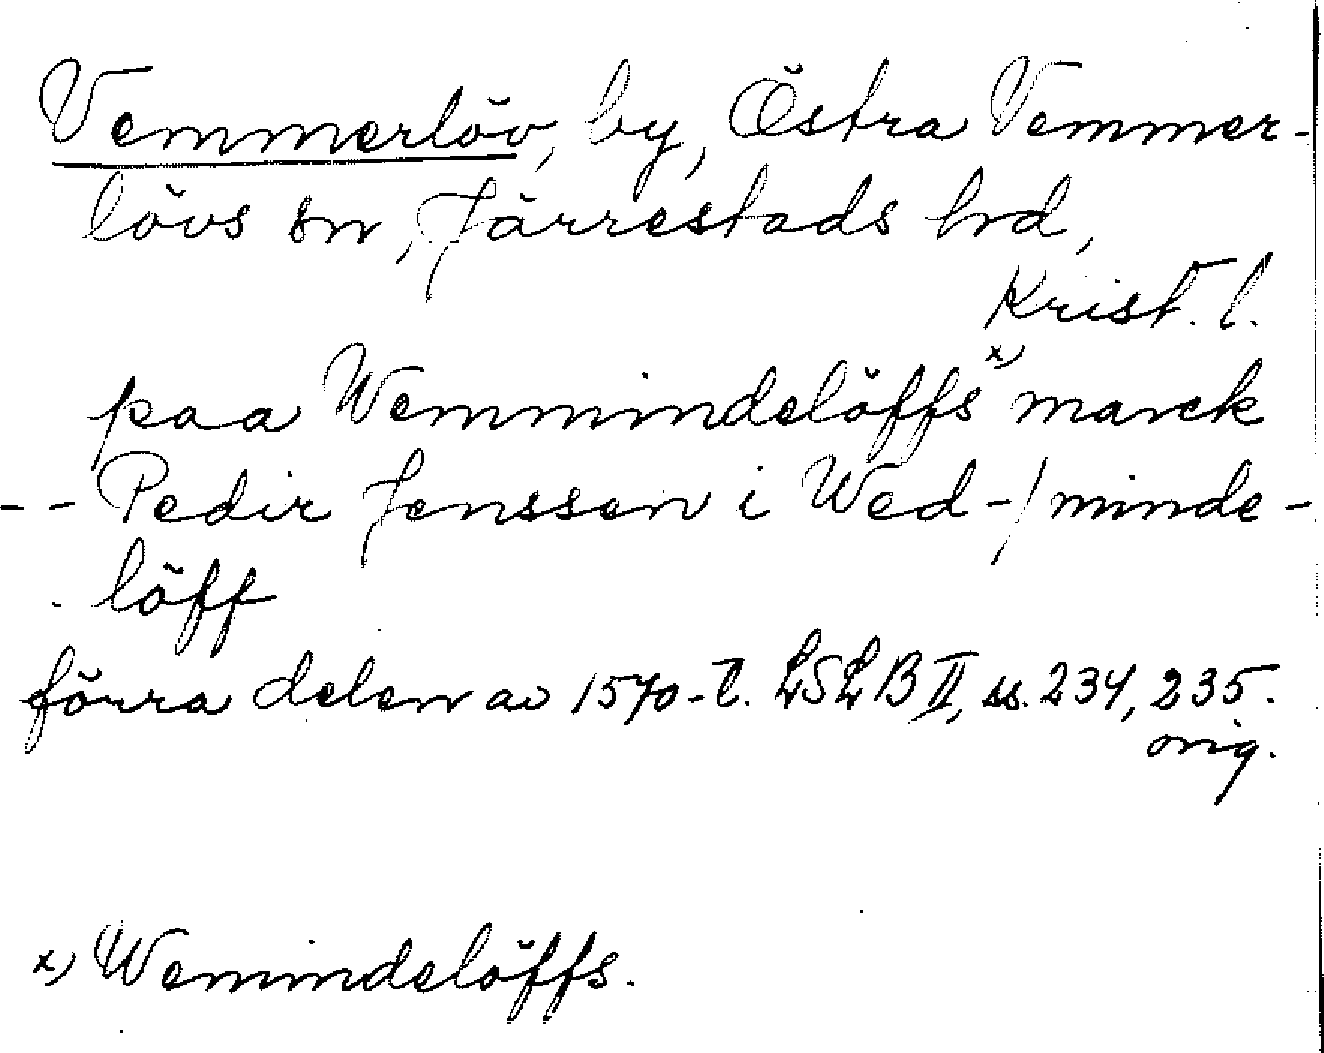 Vemmerlöv, by, Östra Vemmer-
lövs sn, Järrestads hd,
Krist. l.
paa Wemmindelöffs x) marck
- - Pedir Jenssen i Wed-/minde-
löff
förra delen av 1570-t. LSLB II, ss. 234, 235.
orig.
x) Wemindelöffs.